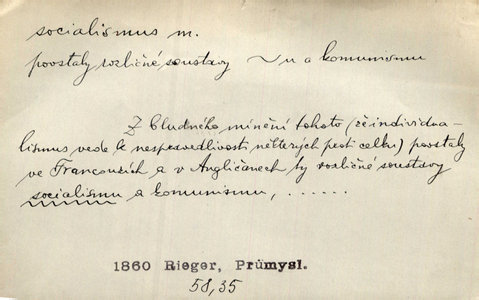 socialismus m.
povstaly rozličné soustavy ~u a komunismu
Z bludného mínění tohoto (že individua-
lismus vede k nespravedlivosti některých proti celku) povstaly
ve Francouzích a v Angličanech ty rozličné soustavy
socialismu a komunismu, . . . . . .
1860 Rieger, Průmysl.
58,35